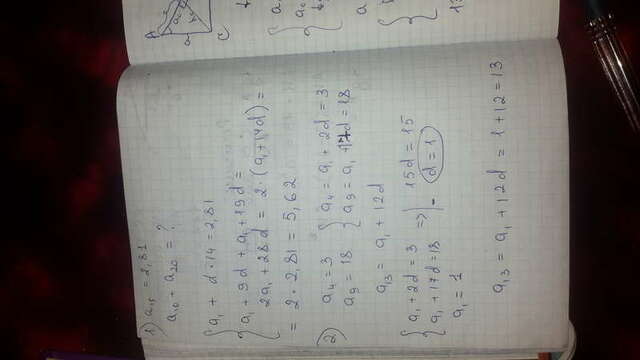 1) a₁₅ = 2,81
a₁₀ + a₂₀ = ?
{ a₁ + d·14 = 2,81
a₁ + 9d + a₁ + 19d =
2a₁ + 28d = 2·(a₁ + 14d) =
= 2·2,81 = 5,62
2) a₄ = 3 { a₄ = a₁ + 2d = 3
a₉ = 18 { a₉ = a₁ + 17d = 18
a₁₃ = a₁ + 12d
{ a₁ + 2d = 3
a₁ + 17d = 18 => | - 15d = 15
a₁ = 1 d = 1
a₁₃ = a₁ + 12d = 1 + 12 = 13
A
C